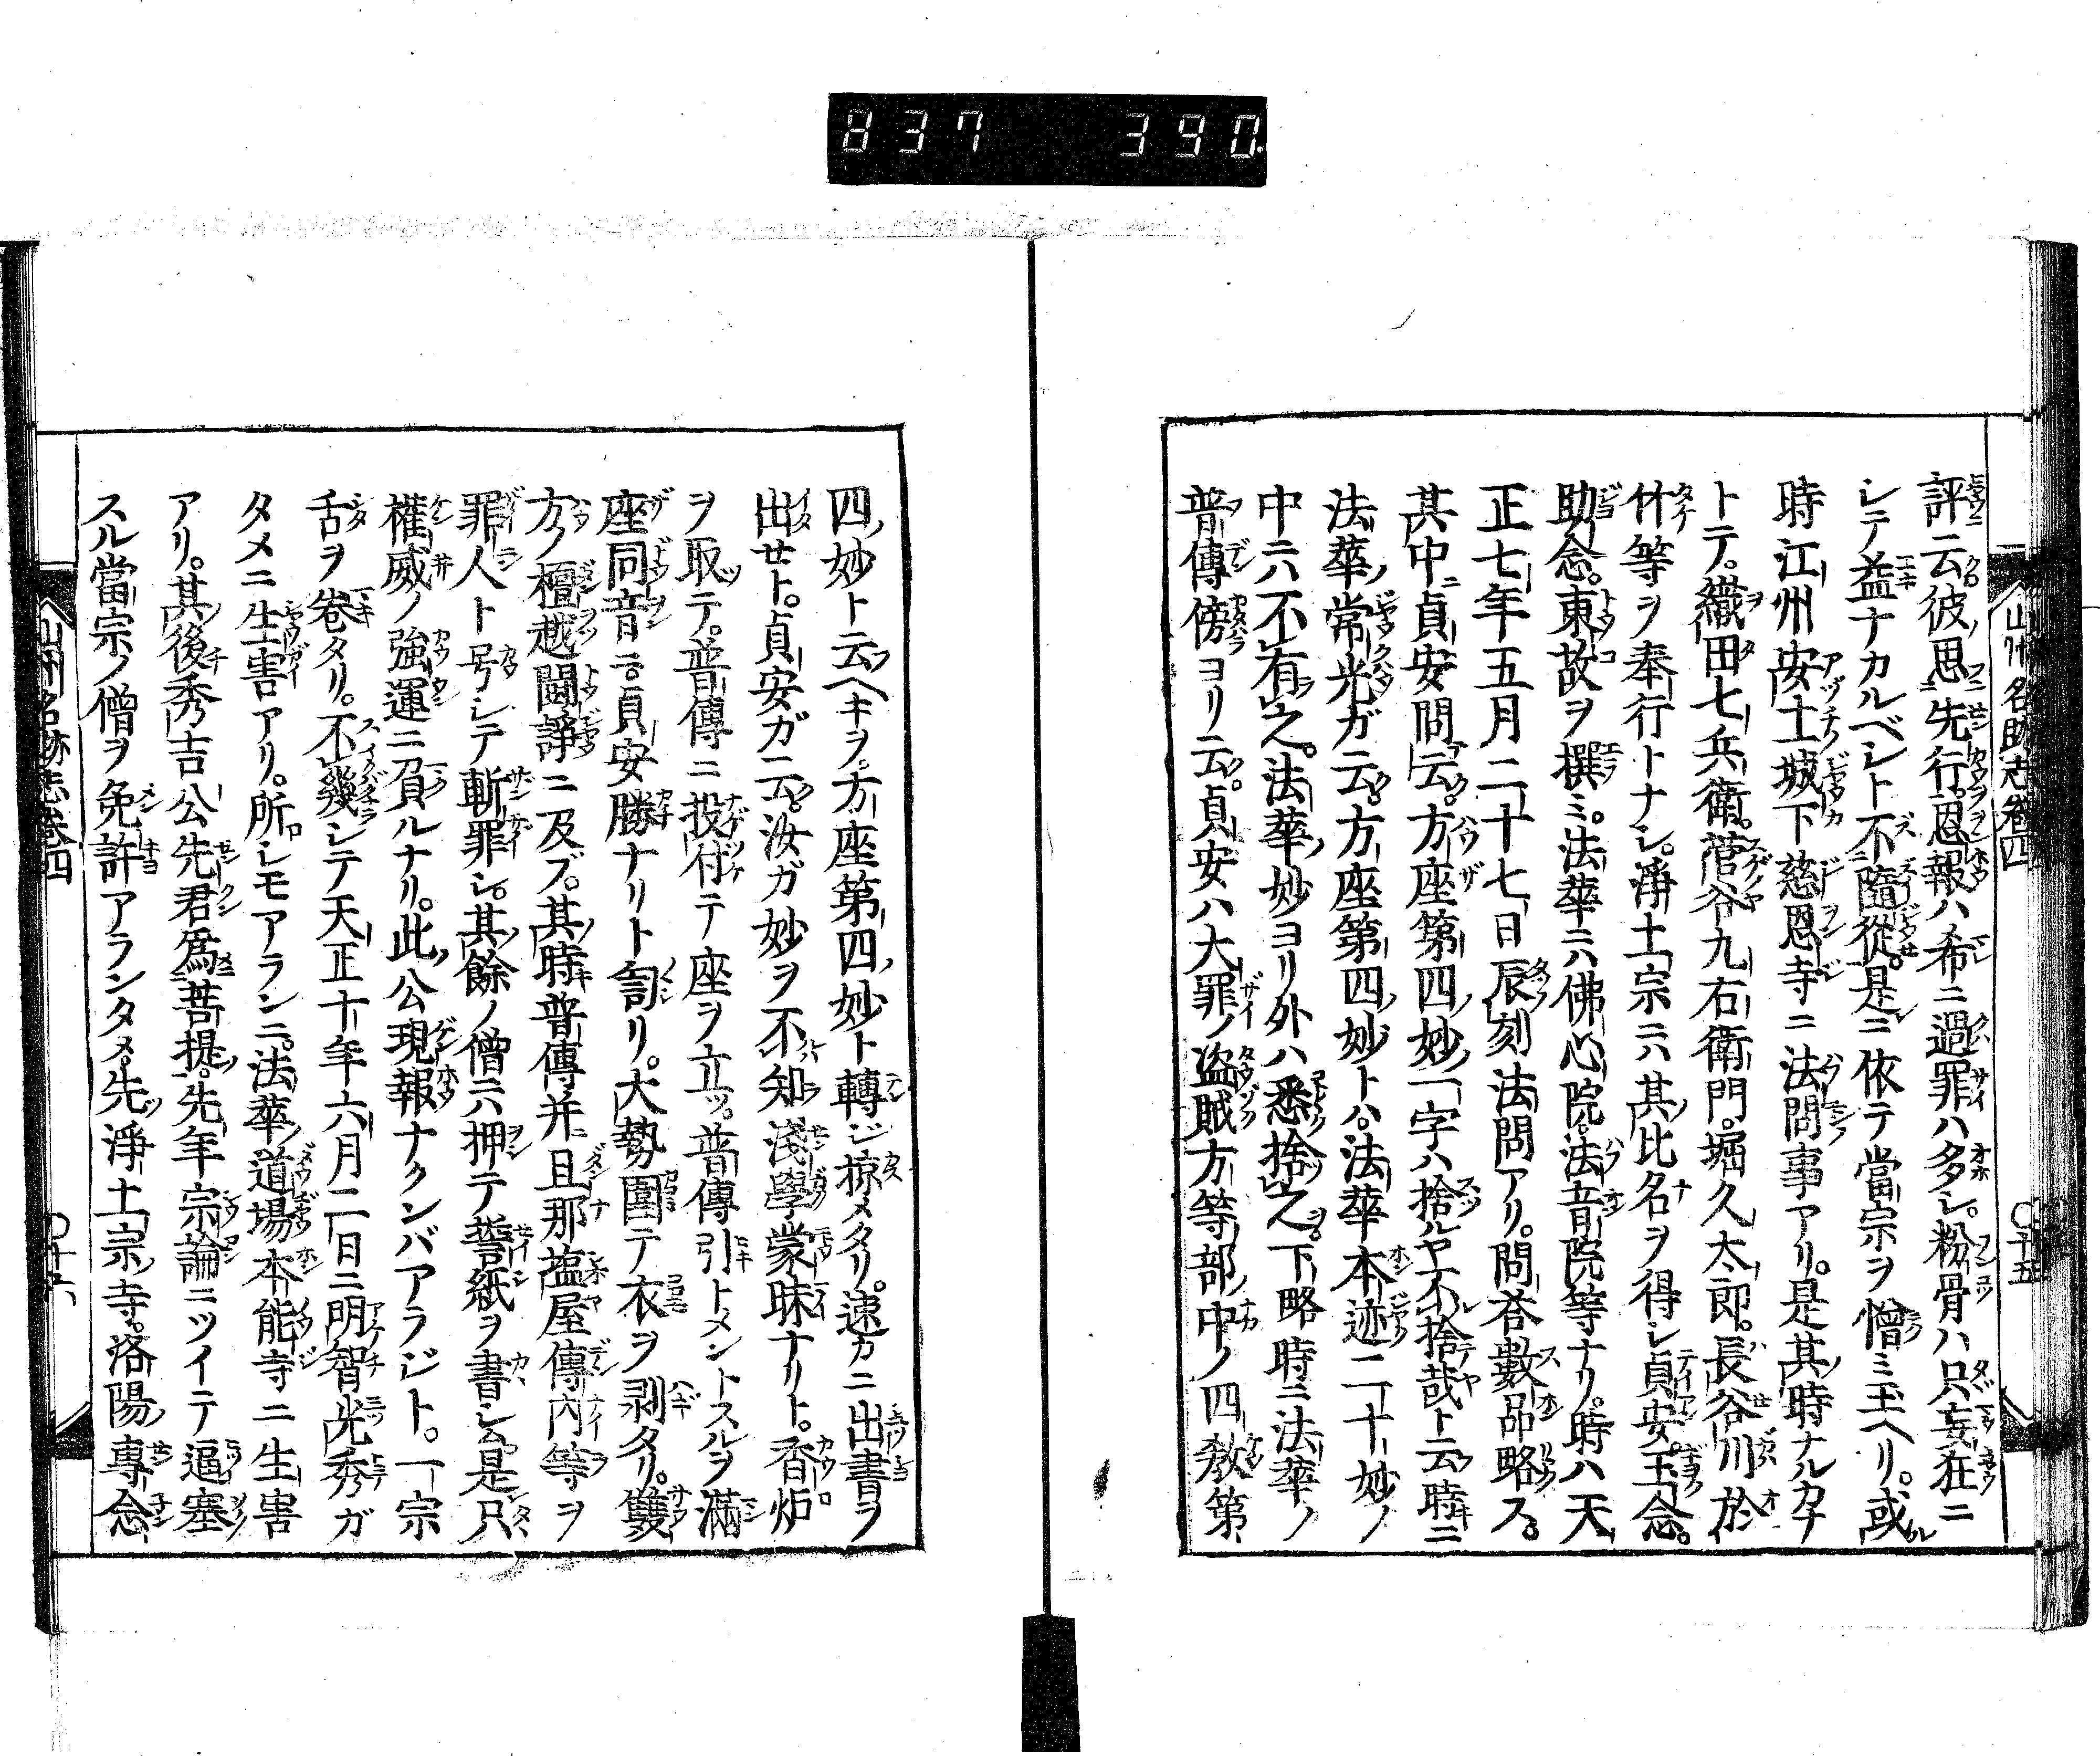 837 390
山州名跡志卷四 〇十五
評云彼思先行恩報ハ希ニ過罪ハ多シ。粉骨ハ只妄狂ニ
シテ益ナカルベシト不隨從。是ニ依テ當宗ヲ憎ミ玉ヘリ。或
時江州安土城下慈恩寺ニ法問事アリ。是其時ナルカナ
トテ。織田七兵衛。菅谷九右衛門。堀久太郎。長谷川於
竹等ヲ奉行トナシ。淨土宗ニハ其比名ヲ得シ貞安玉念。
助念。東故ヲ撰ミ。法華ニハ佛心院。法音院等ナリ。時ハ天
正七年五月二十七日辰刻法問アリ。問答數品略ス。
其中ニ貞安問云。方座第四ノ妙ノ一字ハ捨ルヤ不捨哉ト云時ニ
法華ノ常光ガ云。方座第四ノ妙トハ。法華本迹二十妙ノ
中ニハ不有之。法華ノ妙ヨリ外ハ悉捨之。下略時ニ法華ノ
普傳傍ヨリ云。貞安ハ大罪ノ盜賊方等部ノ中ノ四教第
四ノ妙ト云ヘキヲ。方座第四ノ妙ト轉ジ掠メタリ。速カニ出書ヲ
出セト。貞安ガ云。汝ガ妙ヲ不知淺學蒙昧ナリト。香炉
ヲ取テ。普傳ニ投付テ座ヲ立ツ。普傳引トメントスルヲ滿
座同音ニ貞安勝ナリト訇リ。大勢圍テ衣ヲ剥タリ。雙
方ノ檀越鬪諍ニ及ブ。其時普傳并且那塩屋傳内等ヲ
罪人ト号シテ斬罪シ。其餘ノ僧ニハ押テ誓紙ヲ書シム是只
權威ノ強運ニ負ルナリ。此公現報ナクンバアラジト。一宗
舌ヲ卷タリ。不幾シテ天正十年六月二日ニ明智光秀ガ
タメニ生害アリ。所シモアランニ。法華ノ道場本能寺ニ生害
アリ。其後秀吉公先君爲菩提。先年宗論ニツイテ逼塞
スル當宗ノ僧ヲ免許アランタメ。先淨土宗ノ寺。洛陽ノ專念
山州名跡志卷四 〇十六